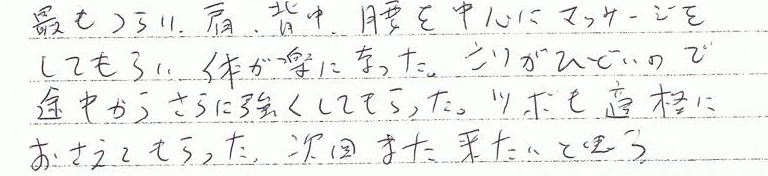 最もつらい、肩、背中、腰を中心にマッサージを
してもらい、体が楽になった。コリがひどいので
途中からさらに強くしてもらった。ツボも適格に
おさえてもらった、次回また来たいと思う